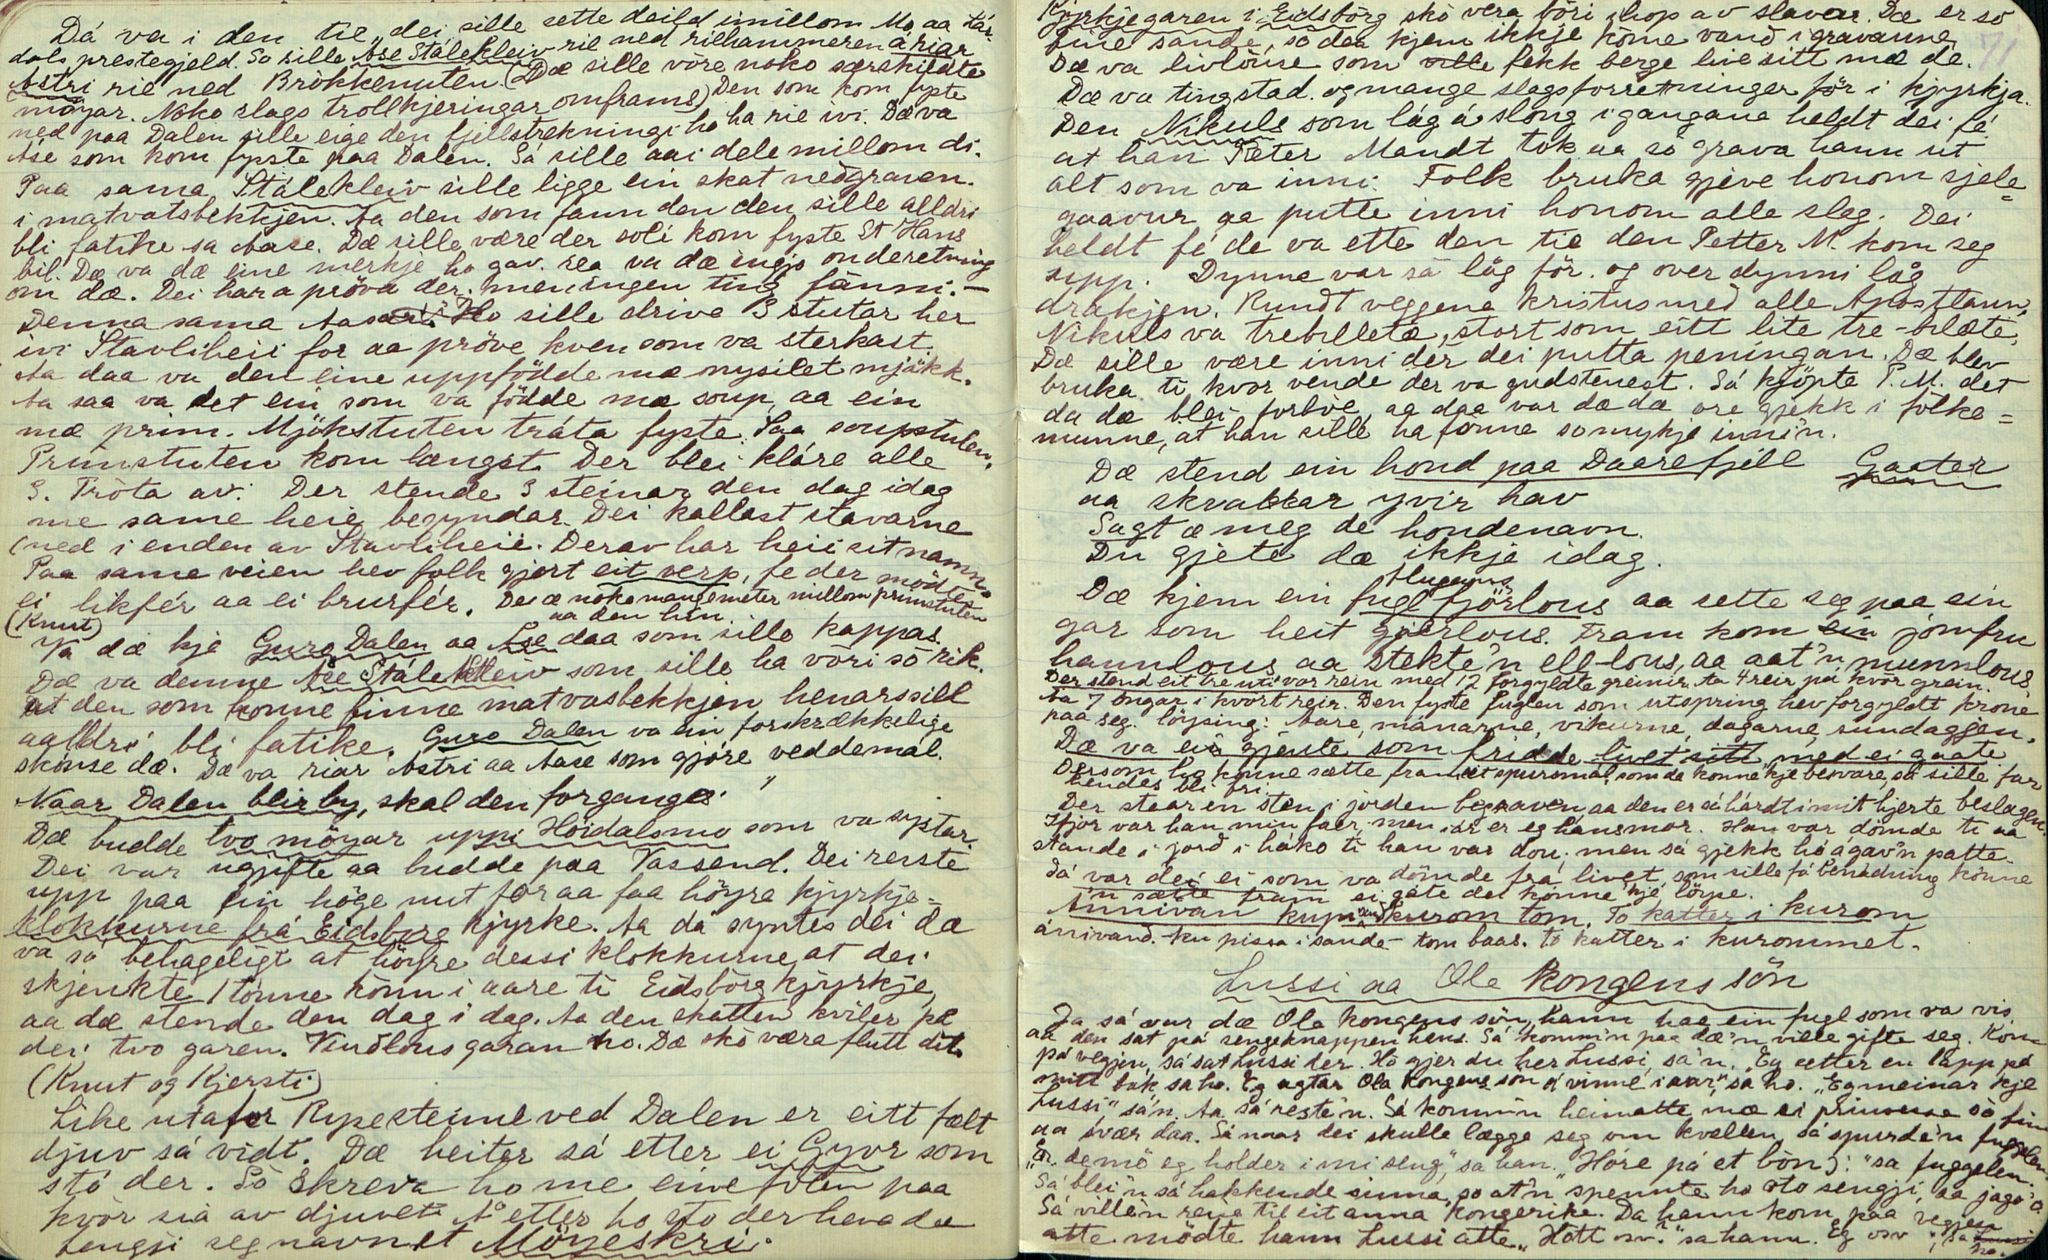 Dá va i den tie „dei sille sette deild imillom Mo aa Lár-
dals prestegjeld. So sille Ase Stálekleiv rie ned rihammeren á riar
Astri rie ned Brökkenuten. (Dæ sille vore noko særskildte
möyar. Noko slags trollkjeringar omframs) Den som kom fyste
ned paa Dalen sille eige den fjellstrekningi ho ha rie ivi. Dæ va
Áse som kom fyste paa Dalen. Sá sille aai dele millom di.
Paa sama Stálekleiv sille ligge ein skat nedgraven.
i matvatsbekkjen. Aa den som fann den den sille alldri
bli fatike sa Aase. Dæ sille være der soli kom fyste St Hans
bil. Dæ va dæ eine merkje ho gav. rea va dæ ingjo onderetning
om dæ. Dei hara pröva der. men ingen ting fánni. —
Denna sama Aasa Ho sille drive 3 stutar her
ivi Stavliheii for aa pröve kven som va sterkast.
Aa daa va den eine uppfödde mæ nysilet mjákk.
Aa saa va det ein som va födde mæ soup aa ein
mæ prim. Mjökstuten tráta fyste. Saa soupstuten.
Primstuten kom længst. Der blei kláre alle
3. Tröta av. Der stende 3 steinar den dag idag
me same heie begyndar. Dei kallast stavarne
(ned i enden av Stavliheii. Derav har heii sit namn.
Paa same veien hev folk gjort eit verp, fe der mödtes
ei likfér aa ei brurfér. Dei æ noko mange meter millom primstuten
aa den hin.
(Knut)
Va dæ kje Guro Dalen aa Ase daa som sille kappas.
Dæ va denne Ase Stálekleiv som sille ha vöri so rik.
at den som konne finne matvasbekkjen henars sill
aalldri bli fatike. Guro Dalen va ein forskrækkelige
skönse dæ. Dæ va riar Astri aa Aase som gjöre veddemál.
Naar Dalen blir by, skal den forganges.
Dæ budde tvo möyar uppi Höidalsmo som va systar.
Dei var ugifte aa budde paa Vassend. Dei reiste
upp paa ein höge nut for aa faa höyre kjyrkje-
klokkurne frá Eidsborg kjyrke. Aa dá syntes dei dæ
va so behageligt at höyre dessi klokkurne, at dei
skjenkte 1 tönne könn i aare ti Eidsborg kjyrkje
aa dæ stende den dag i dag. Aa den skatten kviler pa
dei tvo garen. Vindlous garan ho. Dæ skö være flutt dit.
(Knut og Kjersti)
Like utafor Rypesteinne ved Dalen er eitt fælt
djuv sá vidt. Dæ heiter sá etter ei Gyvr som
stó der. Só skreva ho me eine foten paa
kvör sia av djuvet. Á etter ho sto der heva dæ
fengji seg navnet Möyeskri.
Kjyrkjegaren i Eidsborg skö vera böri ihop av slavar. Dæ er so
fine sande, so dæ kjem ikkje kome vand i gravanne
71
Dæ va livlöuse som sille fekk berge live sitt mæ de.
Dæ va tingstad. og mange slags forretninger för i kjyrkja.
Den Nikuls som lág á slong i gangane heldt dei fé
at han Peter Mandt tok aa so grava hann ut
alt som va inni. Folk bruka gjeve honom sjele-
gaavur aa putte inni honom alle slag. Dei
heldt fé de va ette den tie den Petter M. kom seg
upp. Dynne var sá lág för. og over dynni lág
drakjen. Rundt veggene kristus med alle Apostlann,
Nikuls va trebillete, stort som eitt lite tre-bilæte.
Dæ sille være inni der dei putta peningan. Dæ blev
bruka ti kvor vende der va gudstenest. Sá kjöpte P. M. det
da dæ blei forböe, aa daa var dæ dæ ore gjekk i fölke-
munne, at han sille ha fonne so mykje inni'n.
Dæ stend ein hond paa Daarefjell Gaater
aa skvakkar yvir hav
Sagt æ meg de hondenavn.
Du gjete dæ ikkje idag.
Dæ kjem ein fugl fjörlous aa sette seg paa ein
gar som heit gjerlous. Fram kom ein jomfru
hannlous aa stekte'n ell-lous, aa aat'n munnlous.
Der stend eit tre uti vor rein med 12 forgyldte greinir. Aa 4 reir pá kvor grein.
Aa 7 ongar i kvort reir. Den fyste fuglen som utspring hev forgyldt krone
paa seg. löysing: Aare, mánarne, vikurne, dagarne, sundaggjen.
Dæ va ei gjente som fridde livet sitt med ei gaate
Dersom ho konne sætte fram eit spursmál, som de konne kje besvare, sá sille far
hendes bli fri.
Der staar en sten i jorden begraven, aa den er sá hárdt i mit hjerte beslagen.
Ifjor var han min faer, men i ár er eg hans mor. Han var dömde ti aa
stande i jord i hako ti han var dou. men sá gjekk ho á gav'n patte.
Dá var dei ei som va dömde frá livet, som sille fá benádning konne
'n sætte fram ei gáte dei konne kje löyse.
Annivan kupi sand kurom tom. To katter i kurom
anivand. ku pissa i sande - tom baas. to katter i kurommet.
Lussi aa Ole kongens sön
Ja sá var dæ Ola kongens sön, hann hae ein fugl som va vis
aa den sat pá sengeknappen hens. Sá komm'n paa dæ'n ville gifte seg. Kom
pá vegjen, sá sat Lussi der. Ho gjer du her Lussi, sa'n. „Eg setter en lapp pá
mitt bak, sa ho. Eg agtar Ola kongens sön á vinne i aar", sa ho. „Eg meinar kje
Lussi" sá'n. Aa sá reste'n. Sá komm'n heimatte mæ ei prinsesse sö fin
aa svær daa. Sá naar dei skulle lægge seg om kvellen, sá spurde'n fuggelen.
„Er de mö eg holder i mi seng", sa han. „Höre pá et bön): "sa fuggelen.
Sá blei'n sá hakkende sinna, so at'n spennte ho sto sengji, aa jagó á
Sá ville'n reise til eit anna kongerike. Da hann kom paa vegjen
atte mödte hann Lussi atte. „Hott osv." sa hann. Eg osv., sa ho.